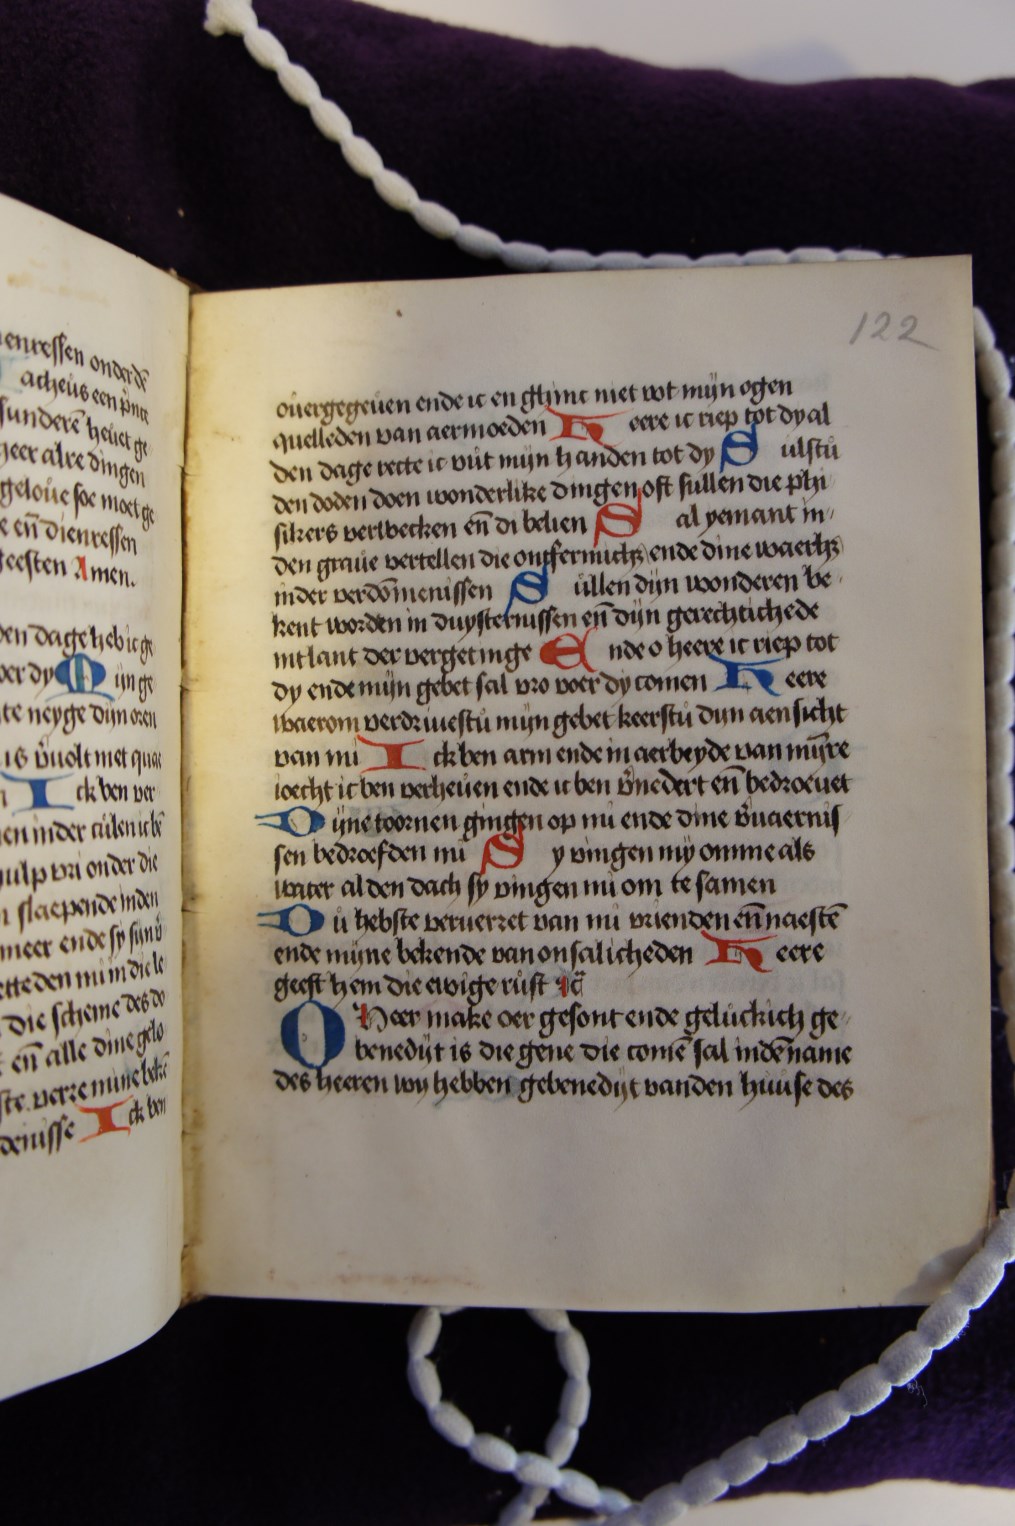 enressen onder dē
acheus een prīce
sunderē heuet ge
heer alre dingen
geloue soe moet ge
e eñ dienressen
geesten Amen.
den dage heb ic ge
voer dy Mijn ge
te neyge dijn oren
is v̄uolt met quae
Ick ben ver
en inder culen ic bē
hulp vri onder die
slaepende inden
meer ende sy sijn v̄
setteden mi in die le
die scheme des do
eñ alle dine gelo
ste verre mine bekē
denisse Ick ben
122
ouergegeuen ende ic en ghinc niet wt mijn ogen
quelleden van aermoeden Heere ic riep tot dy al
den dage recte ic wt mijn handen tot dy Sulstu
den doden doen wonderlike dingen oft sullen die phi
sikers verwecken eñ di belien Sal yemant in
den graue vertellen die ontfermichz ende dine waerhz
inder verdōmenissen Sullen dijn wonderen be
kent worden in duysternissen eñ dijn gerechtichede
int lant der vergetinge Ende o heere ic riep tot
dy ende mijn gebet sal vro voer dy comen Heere
waerom verdriuestu mijn gebet keerstu dijn aensicht
van mi Ick ben arm ende in aerbeyde van mijnre
ioecht ic ben verheuen ende ic ben v̄nedert eñ bedroeuet
Dijne toornen gingen op mi ende dine v̄uaernis
sen bedroefden mi Sy vingen my omme als
water al den dach sy vingen mi om te samen
Du hebste veruerret van mi vrienden eñ naestē
ende mijne bekende van onsalicheden Heere
geeft hem die ewige rust
O Heer make oer gesont ende geluckich ge
benedijt is die gene die comē sal indē name
des heeren wy hebben gebenedijt vanden huuse des